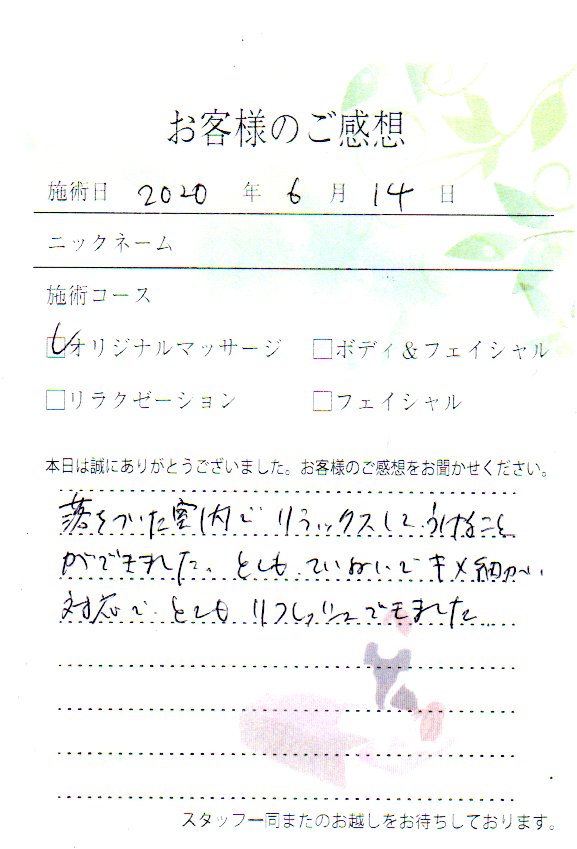 お客様のご感想
施術日 2020 年 6 月 14 日
ニックネーム
施術コース
オリジナルマッサージ □ボディ&フェイシャル
□リラクゼーション □フェイシャル
本日は誠にありがとうございました。お客様のご感想をお聞かせください。
落ちついた室内で リラックスして うけること
ができました。とても ていねいで キメ細かい
対応で、とても リフレッシュできました
スタッフ一同またのお越しをお待ちしております。